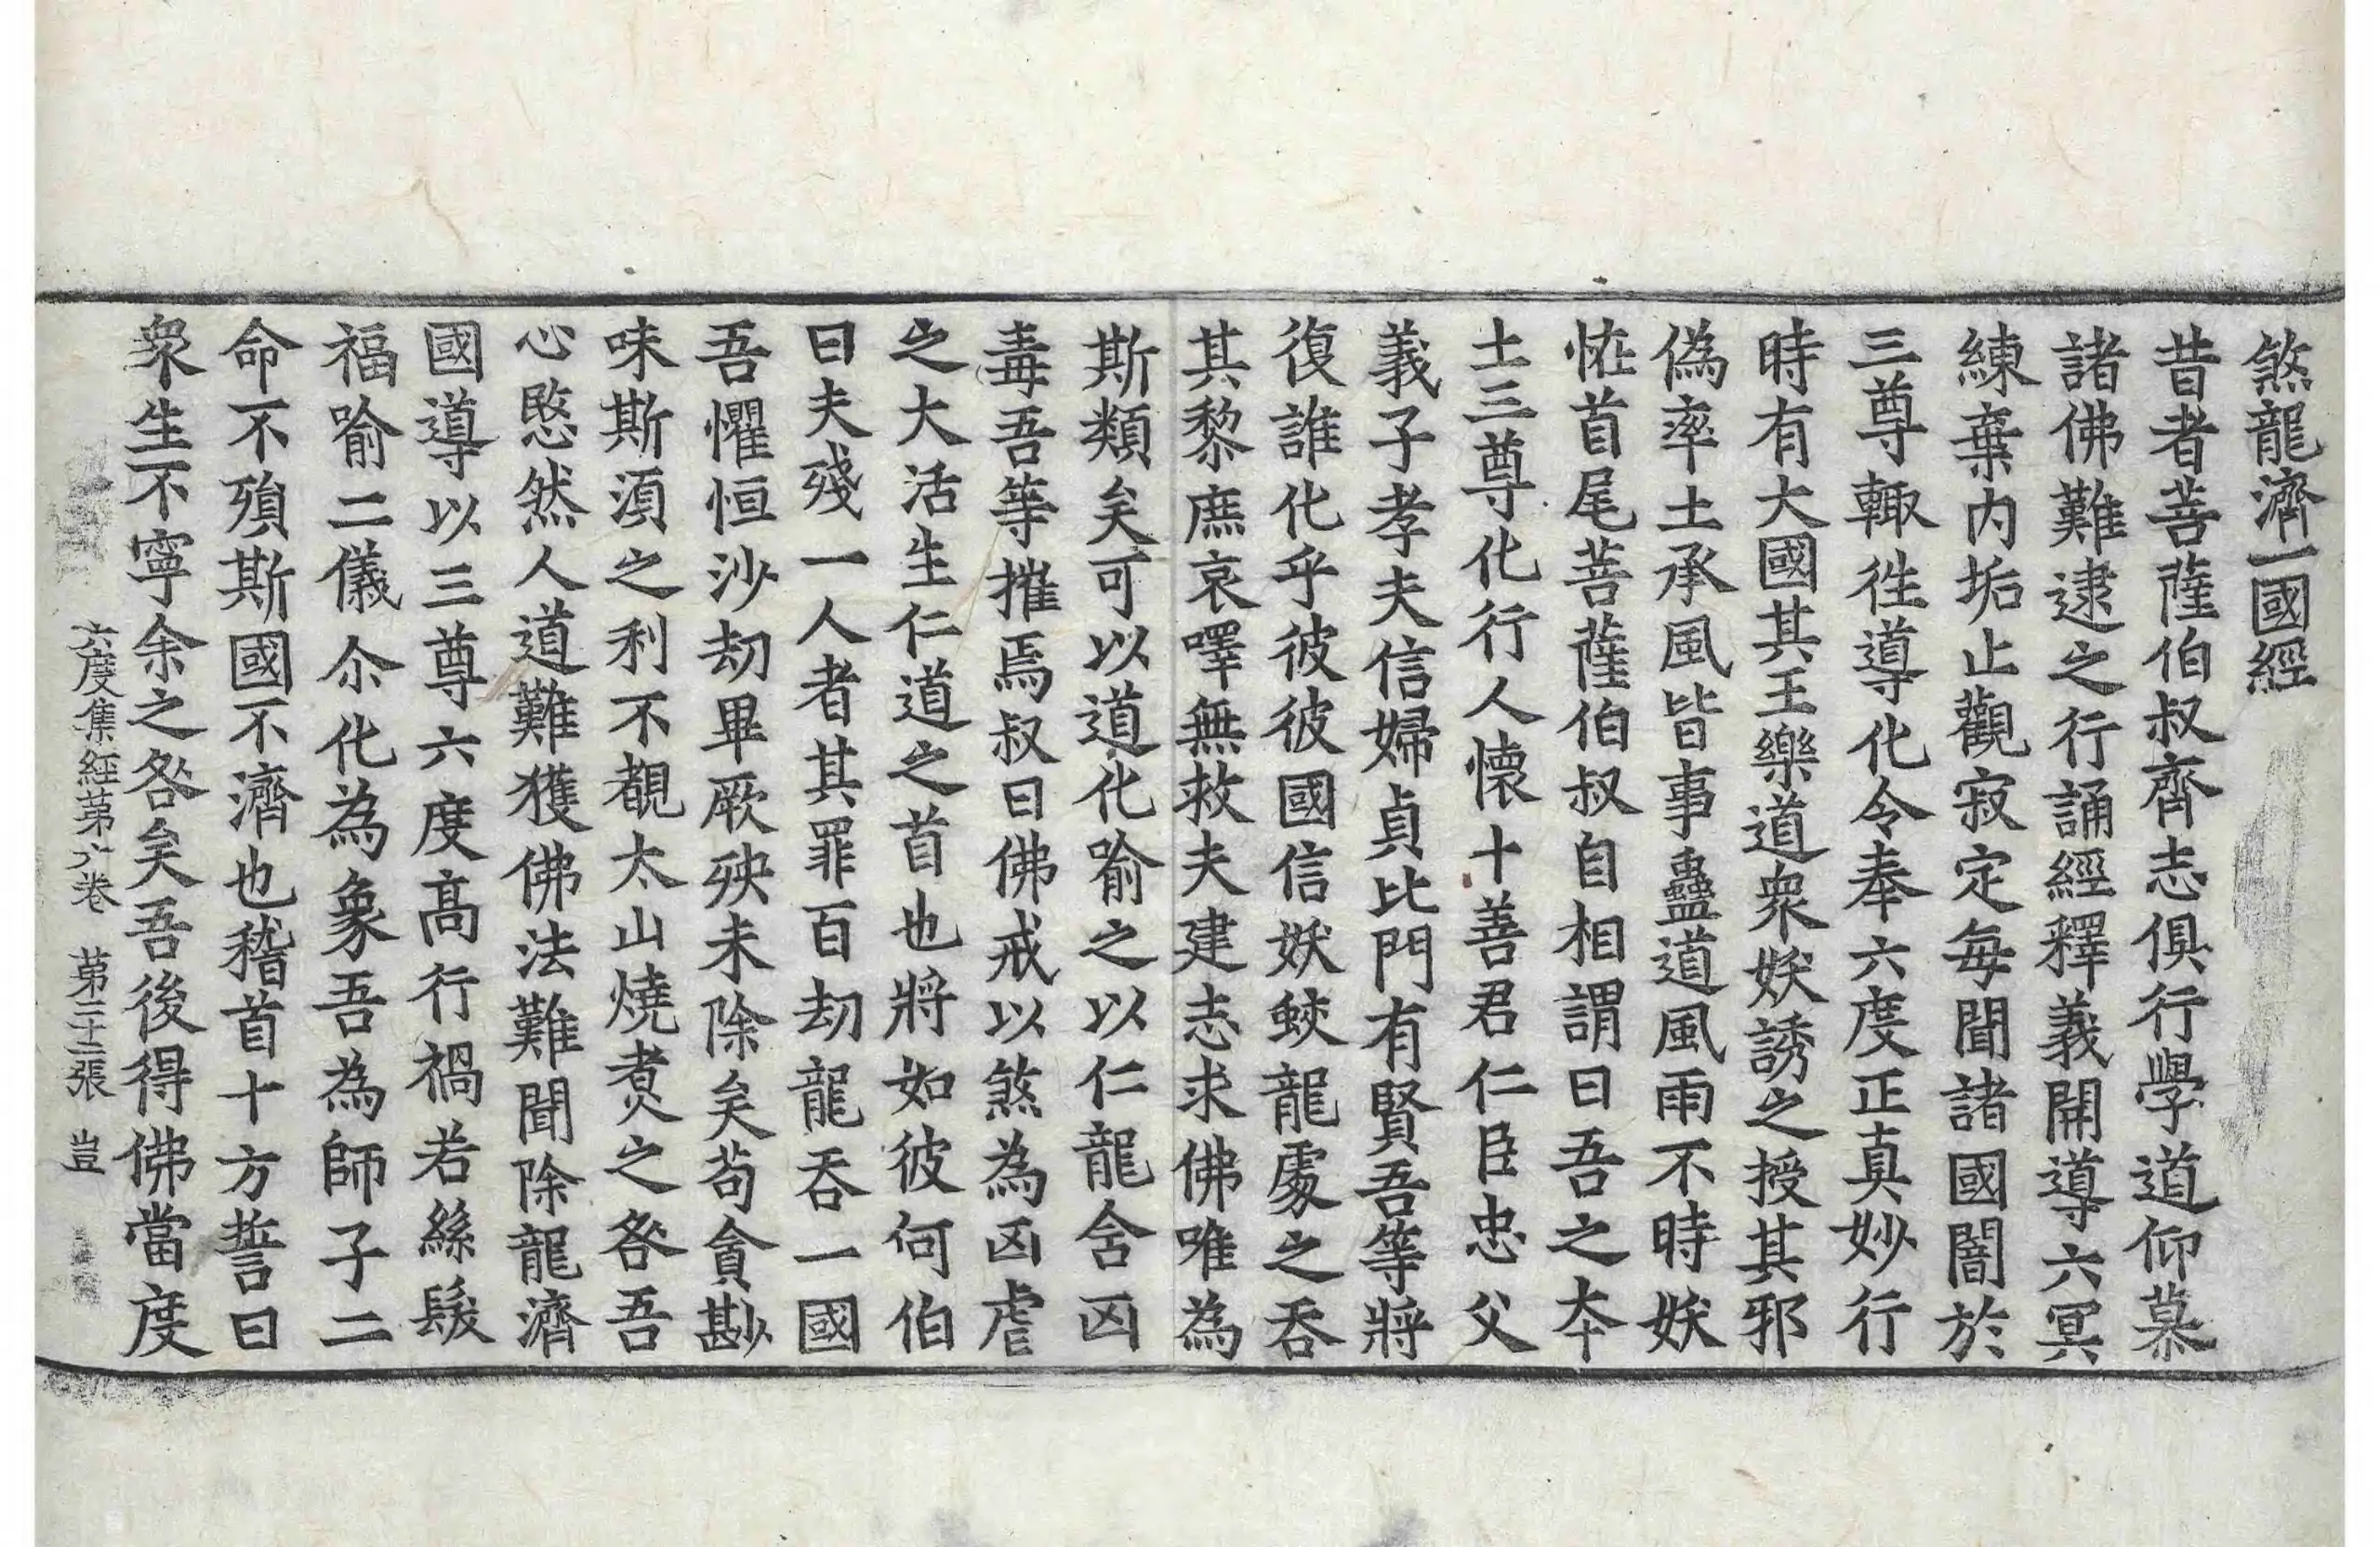 煞龍濟一國經
昔者菩薩伯叔齊志俱行學道仰慕
諸佛難逮之行誦經釋義開導六冥
練棄内垢止觀寂定每聞諸國闇於
三尊輙徃導化令奉六度正真妙行
時有大國其王樂道衆妖誘之授其邪
偽率土承風皆事蠱道風雨不時妖
恠首尾菩薩伯叔自相謂曰吾之夲
土三尊化行人懐十善君仁臣忠父
義子孝夫信婦貞比門有賢吾等將
復誰化乎彼彼國信妖蛟龍處之吞
其黎庶哀嘷無救夫建志求佛唯為
斯類矣可以道化喻之以仁龍含凶
毒吾等摧焉叔曰佛戒以煞為凶虐
之大活生仁道之首也將如彼何伯
曰夫殘一人者其罪百劫龍吞一國
吾懼恒沙劫畢厥殃未除矣苟貪尠
味斯湏之利不覩太山燒煑之咎吾
心愍然人道難獲佛法難聞除龍濟
國導以三尊六度髙行禍若絲髮
福喻二儀尒化為象吾為師子二
命不殞斯國不濟也稽首十方誓曰
衆生不寧余之咎矣吾後得佛當度
六度集經苐六卷　苐二十二張　豈